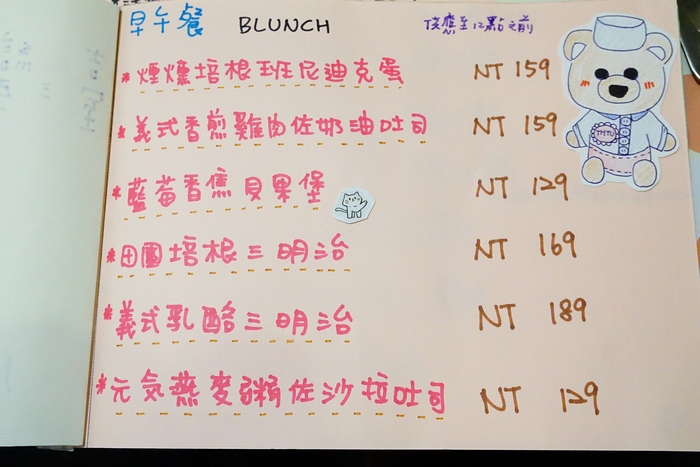 早午餐 BLUNCH 供應至12點之前
*煙燻培根班尼迪克蛋 NT 159
*義式香煎雞肉佐奶油吐司 NT 159
*藍莓香蕉貝果堡 NT 129
*田園培根三明治 NT 169
*義式乳酪三明治 NT 189
*元気燕麥粥佐沙拉吐司 NT 129